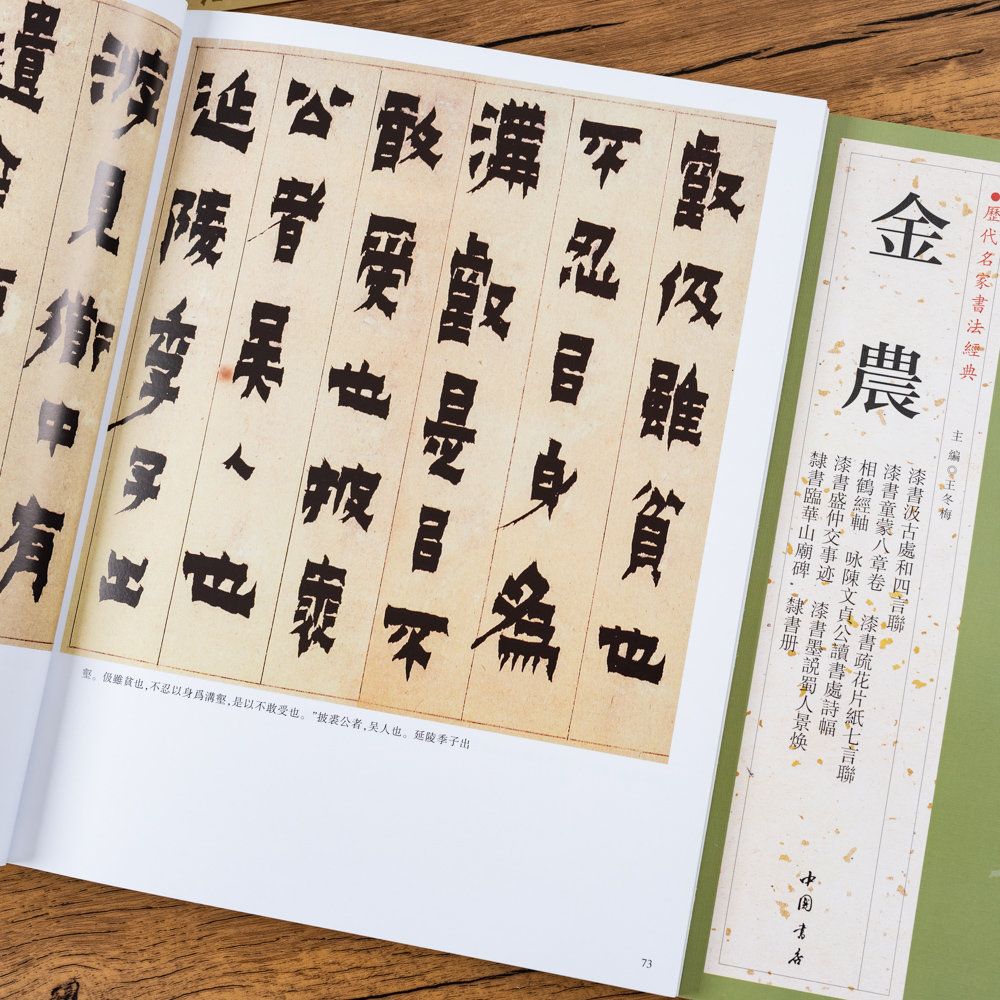 壑伋雖貧也
不忍㠯身為
溝壑是㠯不
敢受也披裘
公者吴人也
延陵季子出
游見衟中有
遺金
壑。伋雖貧也,不忍以身爲溝壑,是以不敢受也。”披裘公者,吴人也。延陵季子出
73
歷代名家書法經典
金農
主編◎王冬梅
漆書汲古處和四言聯
漆書童蒙八章卷 漆書疏花片紙七言聯
相鶴經軸 咏陳文貞公讀書處詩幅
漆書盛仲交事迹 漆書墨説蜀人景焕
隸書臨華山廟碑·隸書册
中國書店